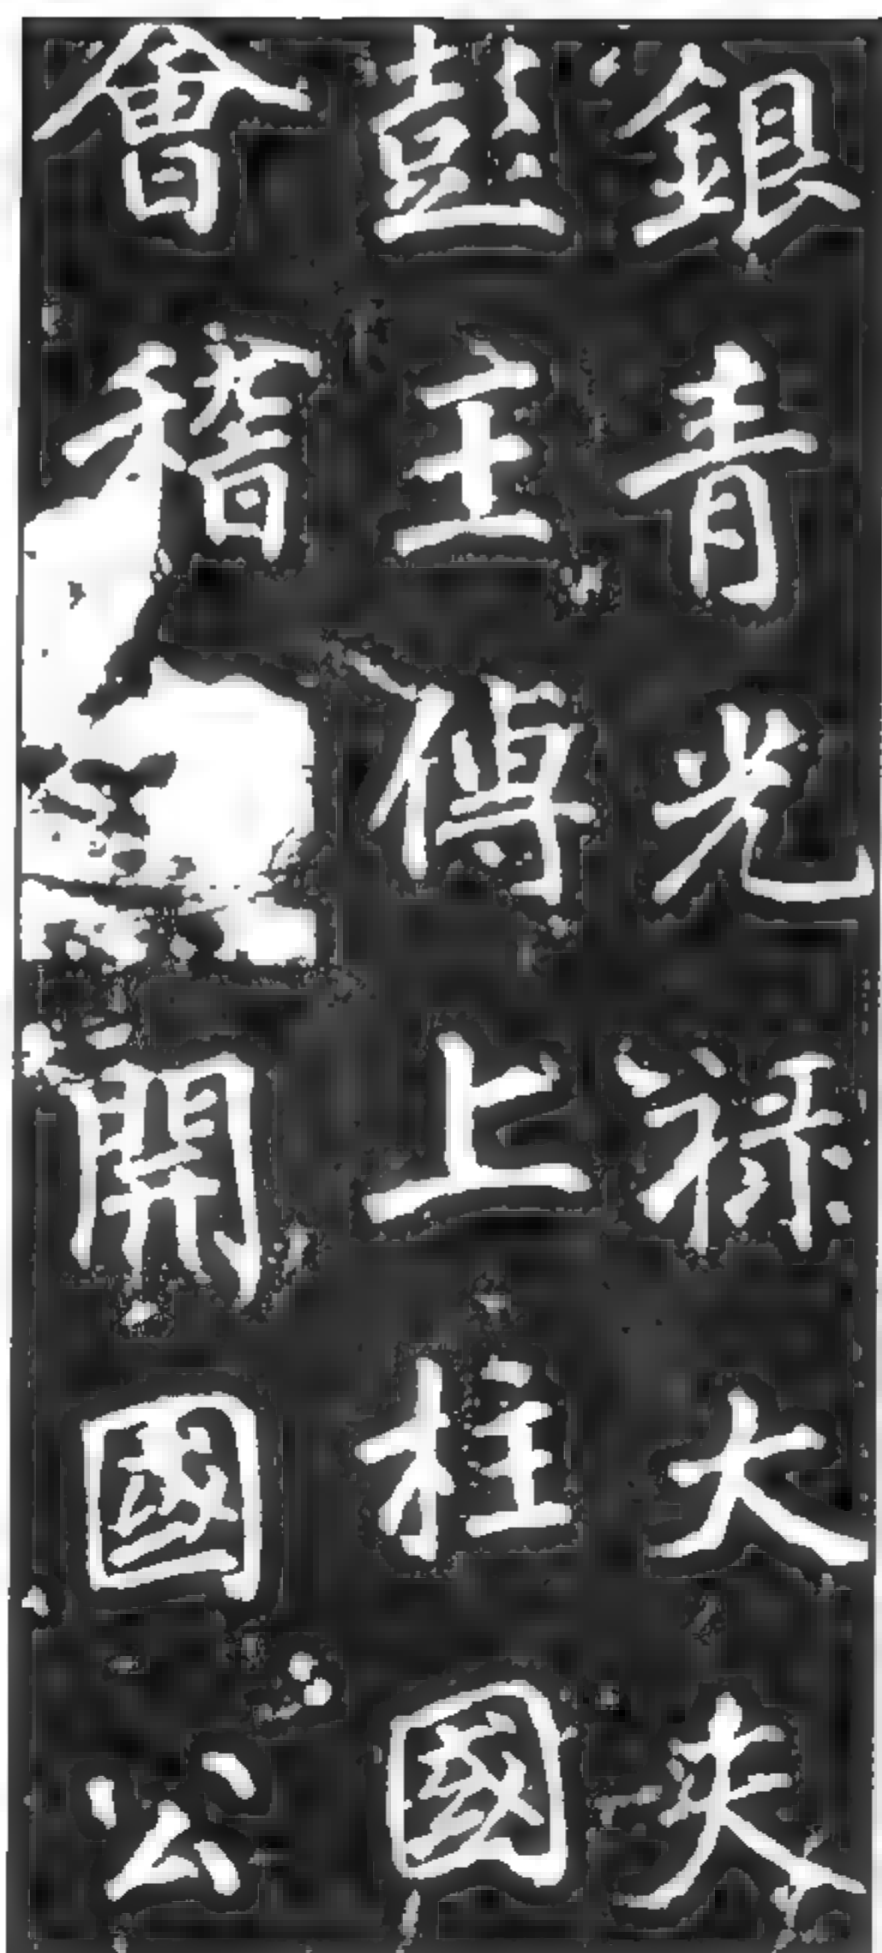 銀青光禄大夫
彭王傅上柱國
會稽開國公